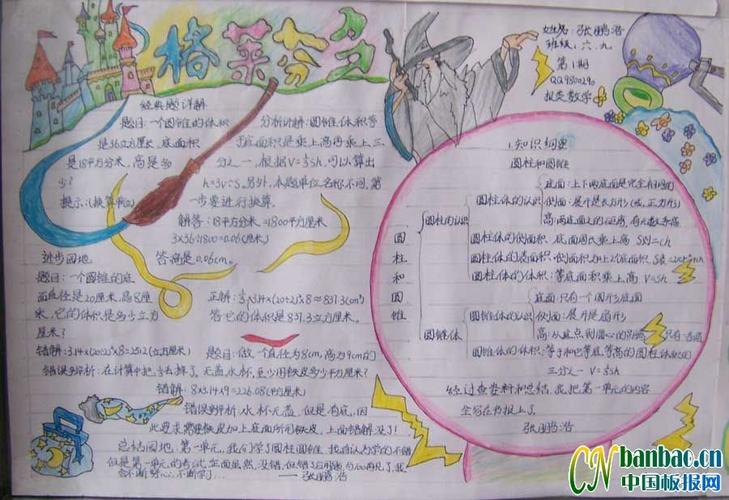 格莱芬多
姓名：张鹏浩
班级：六、九
第1期
报类数学
经典题详解
题目：一个圆锥的体积
是36立方厘米，底面积
是18平方分米，高是多
少？
提示：(换算单位)
分析详解：圆锥体积等
于底面积乘上高再乘上三
分之一，根据V=⅓sh，可以算出
h=3v÷s，另外，本题单位名称不同，第
一步要进行换算。
解答：18平方分米=1800平方厘米
3×36÷1800=0.06(厘米)
答：高是0.06cm。
进步园地
题目：一个圆锥的底
面直径是20厘米，高8厘
米，它的体积是多少立方
厘米？
正解：⅓×3.14×(20÷2)²×8≈837.3(cm³)
答：它的体积是837.3立方厘米。
错解：3.14×(20÷2)²×8=2512(立方厘米)
错误剖析：在计算中把
题目：做一个直径为8cm，高为9cm的
无盖水杯，至少用铁皮多少平方厘米？
错解：8×3.14×9=226.08(平方厘米)
错误剖析：水杯无盖，但是有底，因
此要求需要铁皮加上底面所用铁皮，上面错解没了！
总结园地：第一单元，我们学了圆柱圆锥，我自认为学的不错
但是第一单元的考试
会不断努力，不断学习
——张鹏浩
知识梳理
圆柱和圆锥
圆柱和圆锥
圆柱的认识
圆柱体的认识
底面：上下两底面是完全相同的
侧面：展开是长方形(或正方形)
高：两底面之间的距离，有无数条高
圆柱体的侧面积：底面周长乘上高 S侧=ch
圆柱体的表面积：侧面积加上2个底面积
圆柱体的体积：等底面积乘上高 V=Sh
圆锥体
圆锥体的认识
底面：只有一个圆形底面
侧面：展开是扇形
高：从顶点到圆心的距离，只有一条高
圆锥体的体积：等于和它等底等高的圆柱体体积的
三分之一 V=⅓sh
经过查资料和总结，我把第一单元的内容
全写在抄报上了
张鹏浩
CN banbao.cn
中国板报网